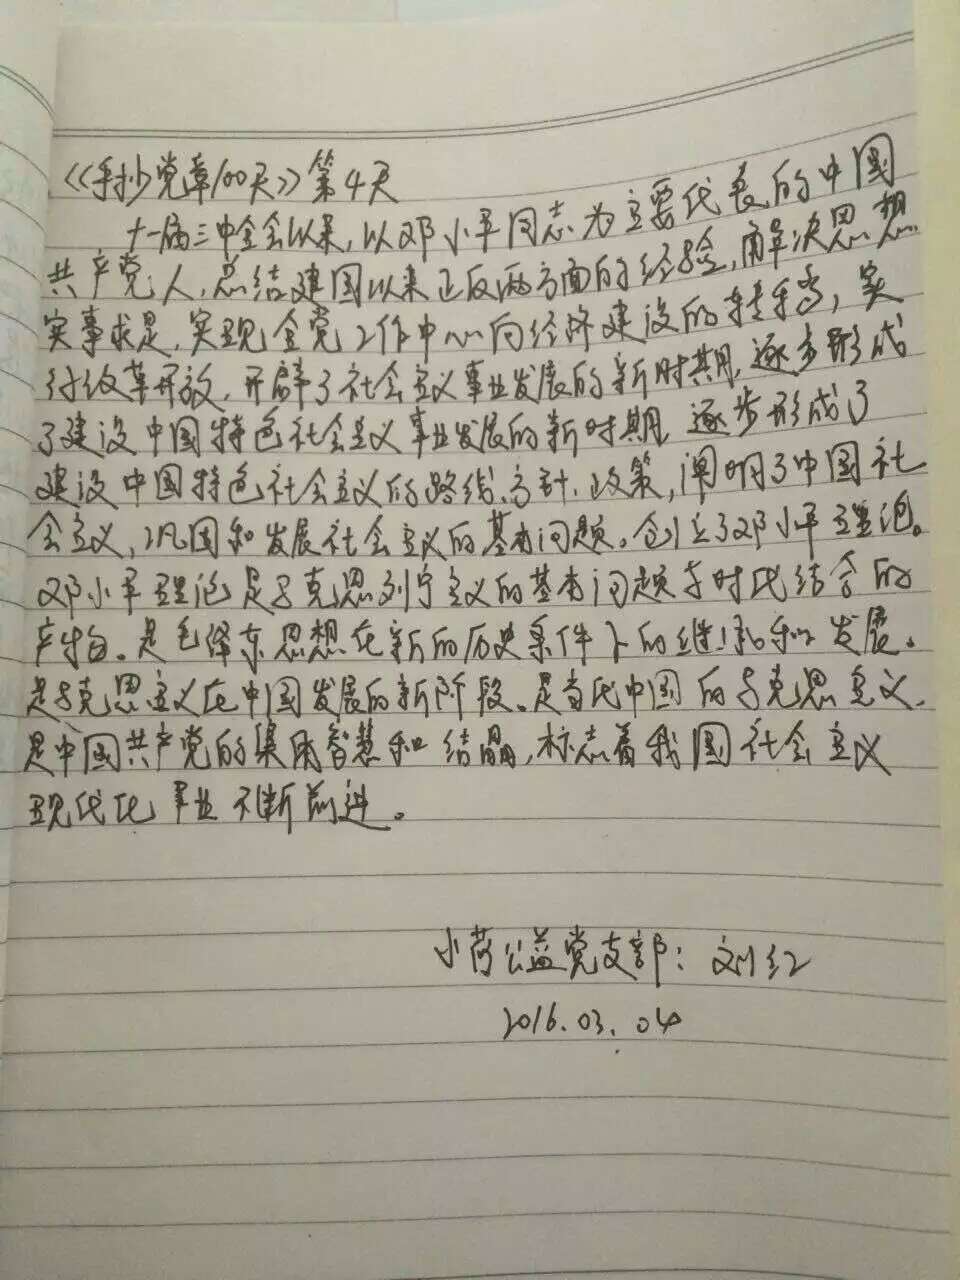 《手抄党章100天》第4天
十一届三中全会以来,以邓小平同志为主要代表的中国
共产党人,总结建国以来正反两方面的经验,解决思想
实事求是,实现全党工作中心向经济建设的转移,实
行改革开放,开辟了社会主义事业发展的新时期,逐步形成
了建设中国特色社会主义事业发展的新时期 逐步形成了
建设中国特色社会主义的路线、方针、政策,阐明了中国社
会主义,巩固和发展社会主义的基本问题。创立了邓小平理论。
邓小平理论是马克思列宁主义的基本问题与时代结合的
产物。是毛泽东思想在新的历史条件下的继承和发展。
是马克思主义在中国发展的新阶段。是当代中国的马克思主义,
是中国共产党的集体智慧和结晶,标志着我国社会主义
现代化事业不断前进。
小荷公益党支部:刘红
2016.03.04